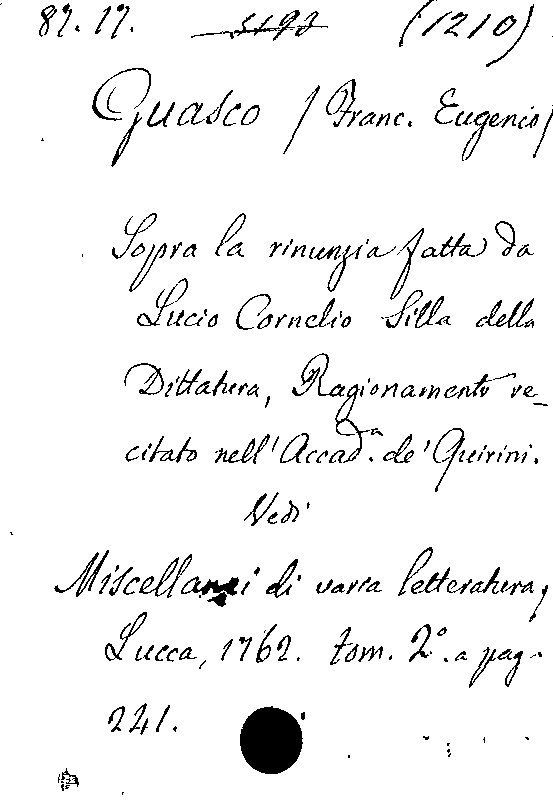 87.17. 5193 (1210)
Guasco / Franc. Eugenio/
Sopra la rinunzia fatta da
Lucio Cornelio Silla della
Dittatura, Ragionamento re-
citato nell'Accad.a de' Quirini.
Vedi
Miscellanei di varia letteratura,
Lucca, 1762. tom. 2º. a pag.
241.